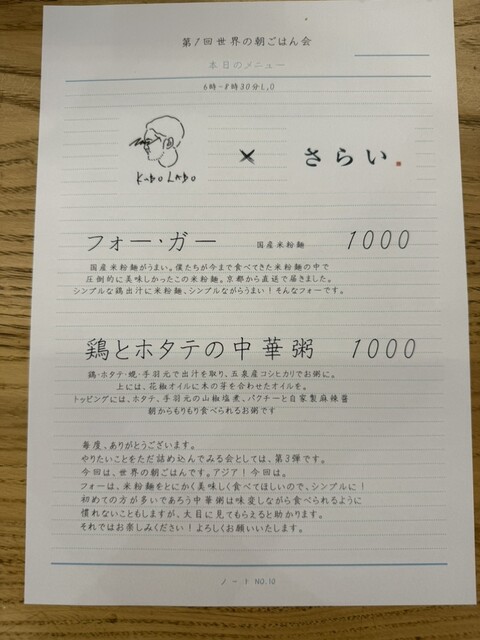 第1回世界の朝ごはん会
本日のメニュー
6時-8時30分L.O
KUBO LABO
×
さらい
フォー・ガー 国産米粉麺 1000
国産米粉麺がうまい。僕たちが今まで食べてきた米粉麺の中で
圧倒的に美味しかったこの米粉麺。京都から直送で届きました。
シンプルな鶏出汁に米粉麺、シンプルながらうまい!そんなフォーです。
鶏とホタテの中華粥 1000
鶏・ホタテ・蜆・手羽元で出汁を取り、五泉産コシヒカリでお粥に。
上には、花椒オイルに木の芽を合わせたオイルを。
トッピングには、ホタテ、手羽元の山椒塩煮、パクチーと自家製麻辣醤
朝からもりもり食べられるお粥です
毎度、ありがとうございます。
やりたいことをただ詰め込んでみる会としては、第3弾です。
今回は、世界の朝ごはんです。アジア!今回は。
フォーは、米粉麺をとにかく美味しく食べてほしいので、シンプルに!
初めての方が多いであろう中華粥は味変しながら食べられるように
慣れないこともしますが、大目に見てもらえると助かります。
それではお楽しみください!よろしくお願いいたします。
ノート NO.10